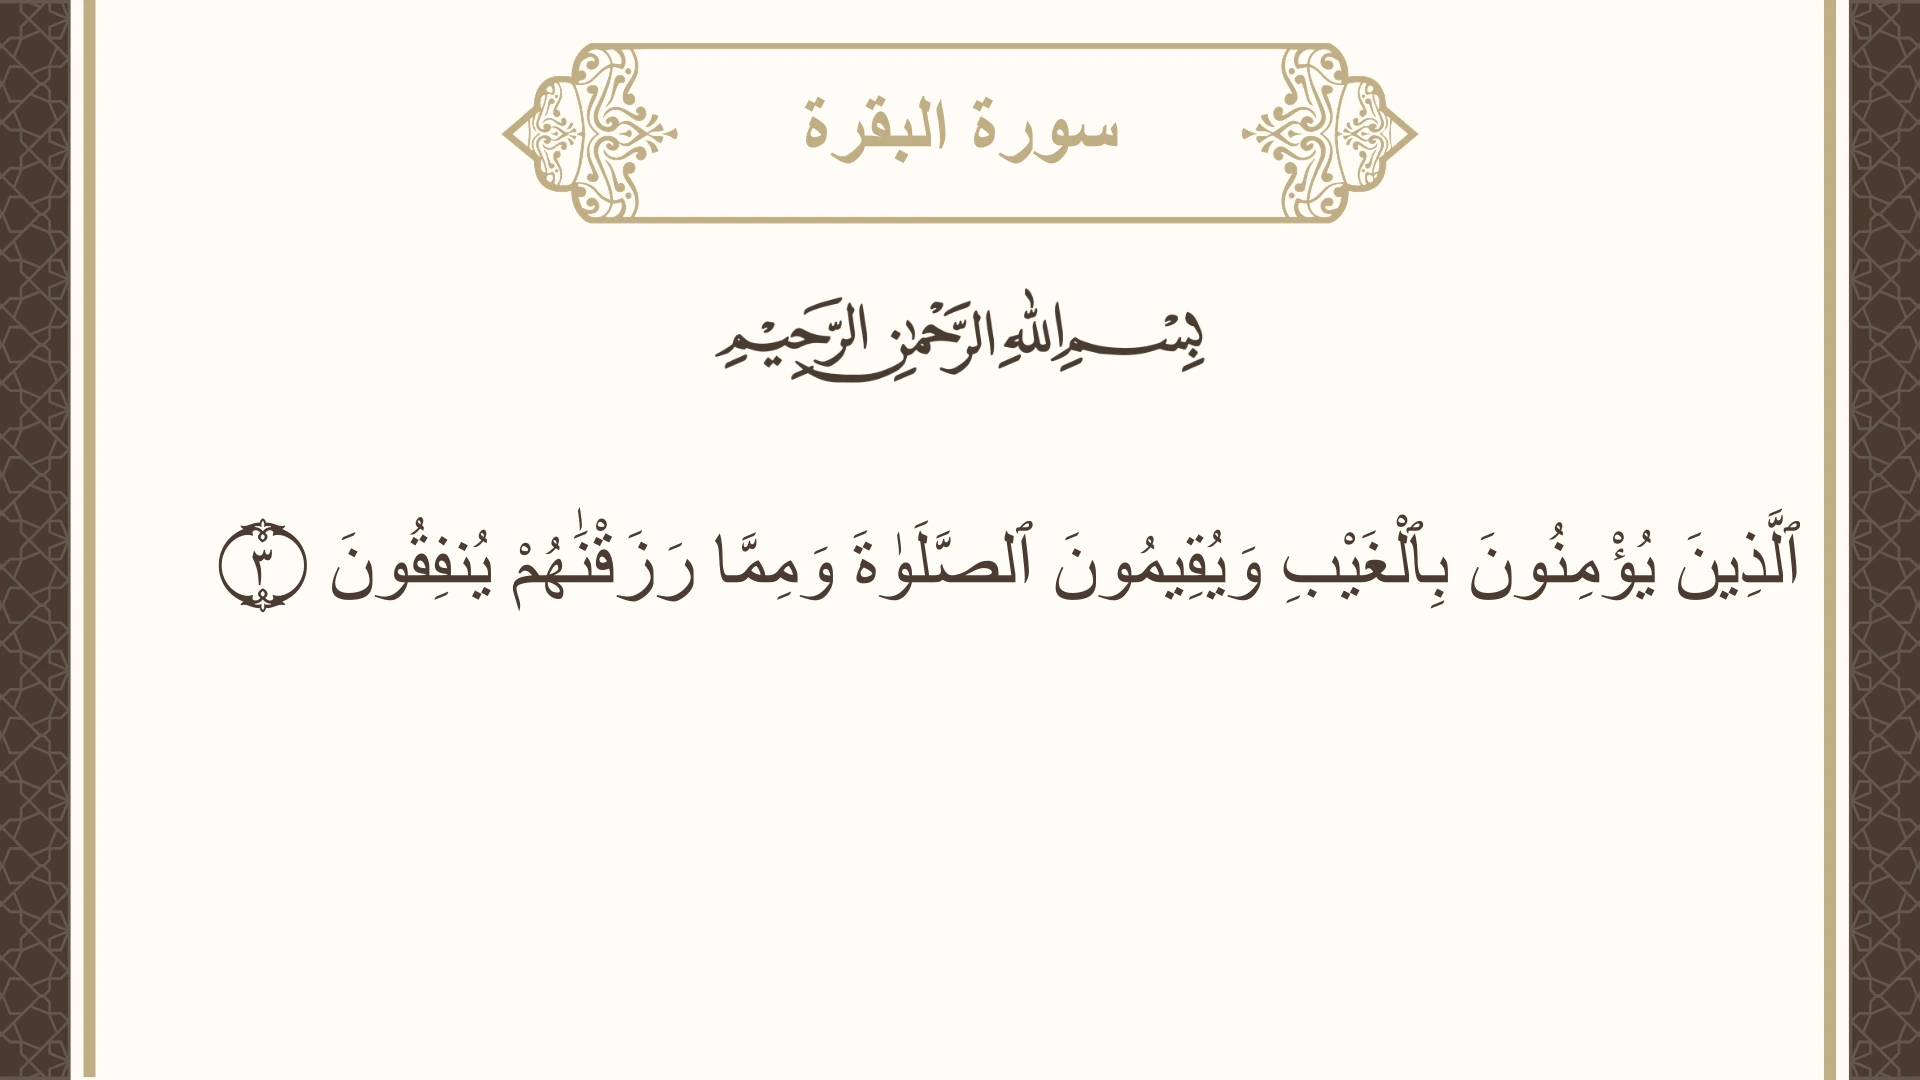 سورة البقرة
بِسْمِ اللهِ الرَّحْمٰنِ الرَّحِيْمِ
ٱلَّذِينَ يُؤْمِنُونَ بِٱلْغَيْبِ وَيُقِيمُونَ ٱلصَّلَوٰةَ وَمِمَّا رَزَقْنَٰهُمْ يُنفِقُونَ ٣